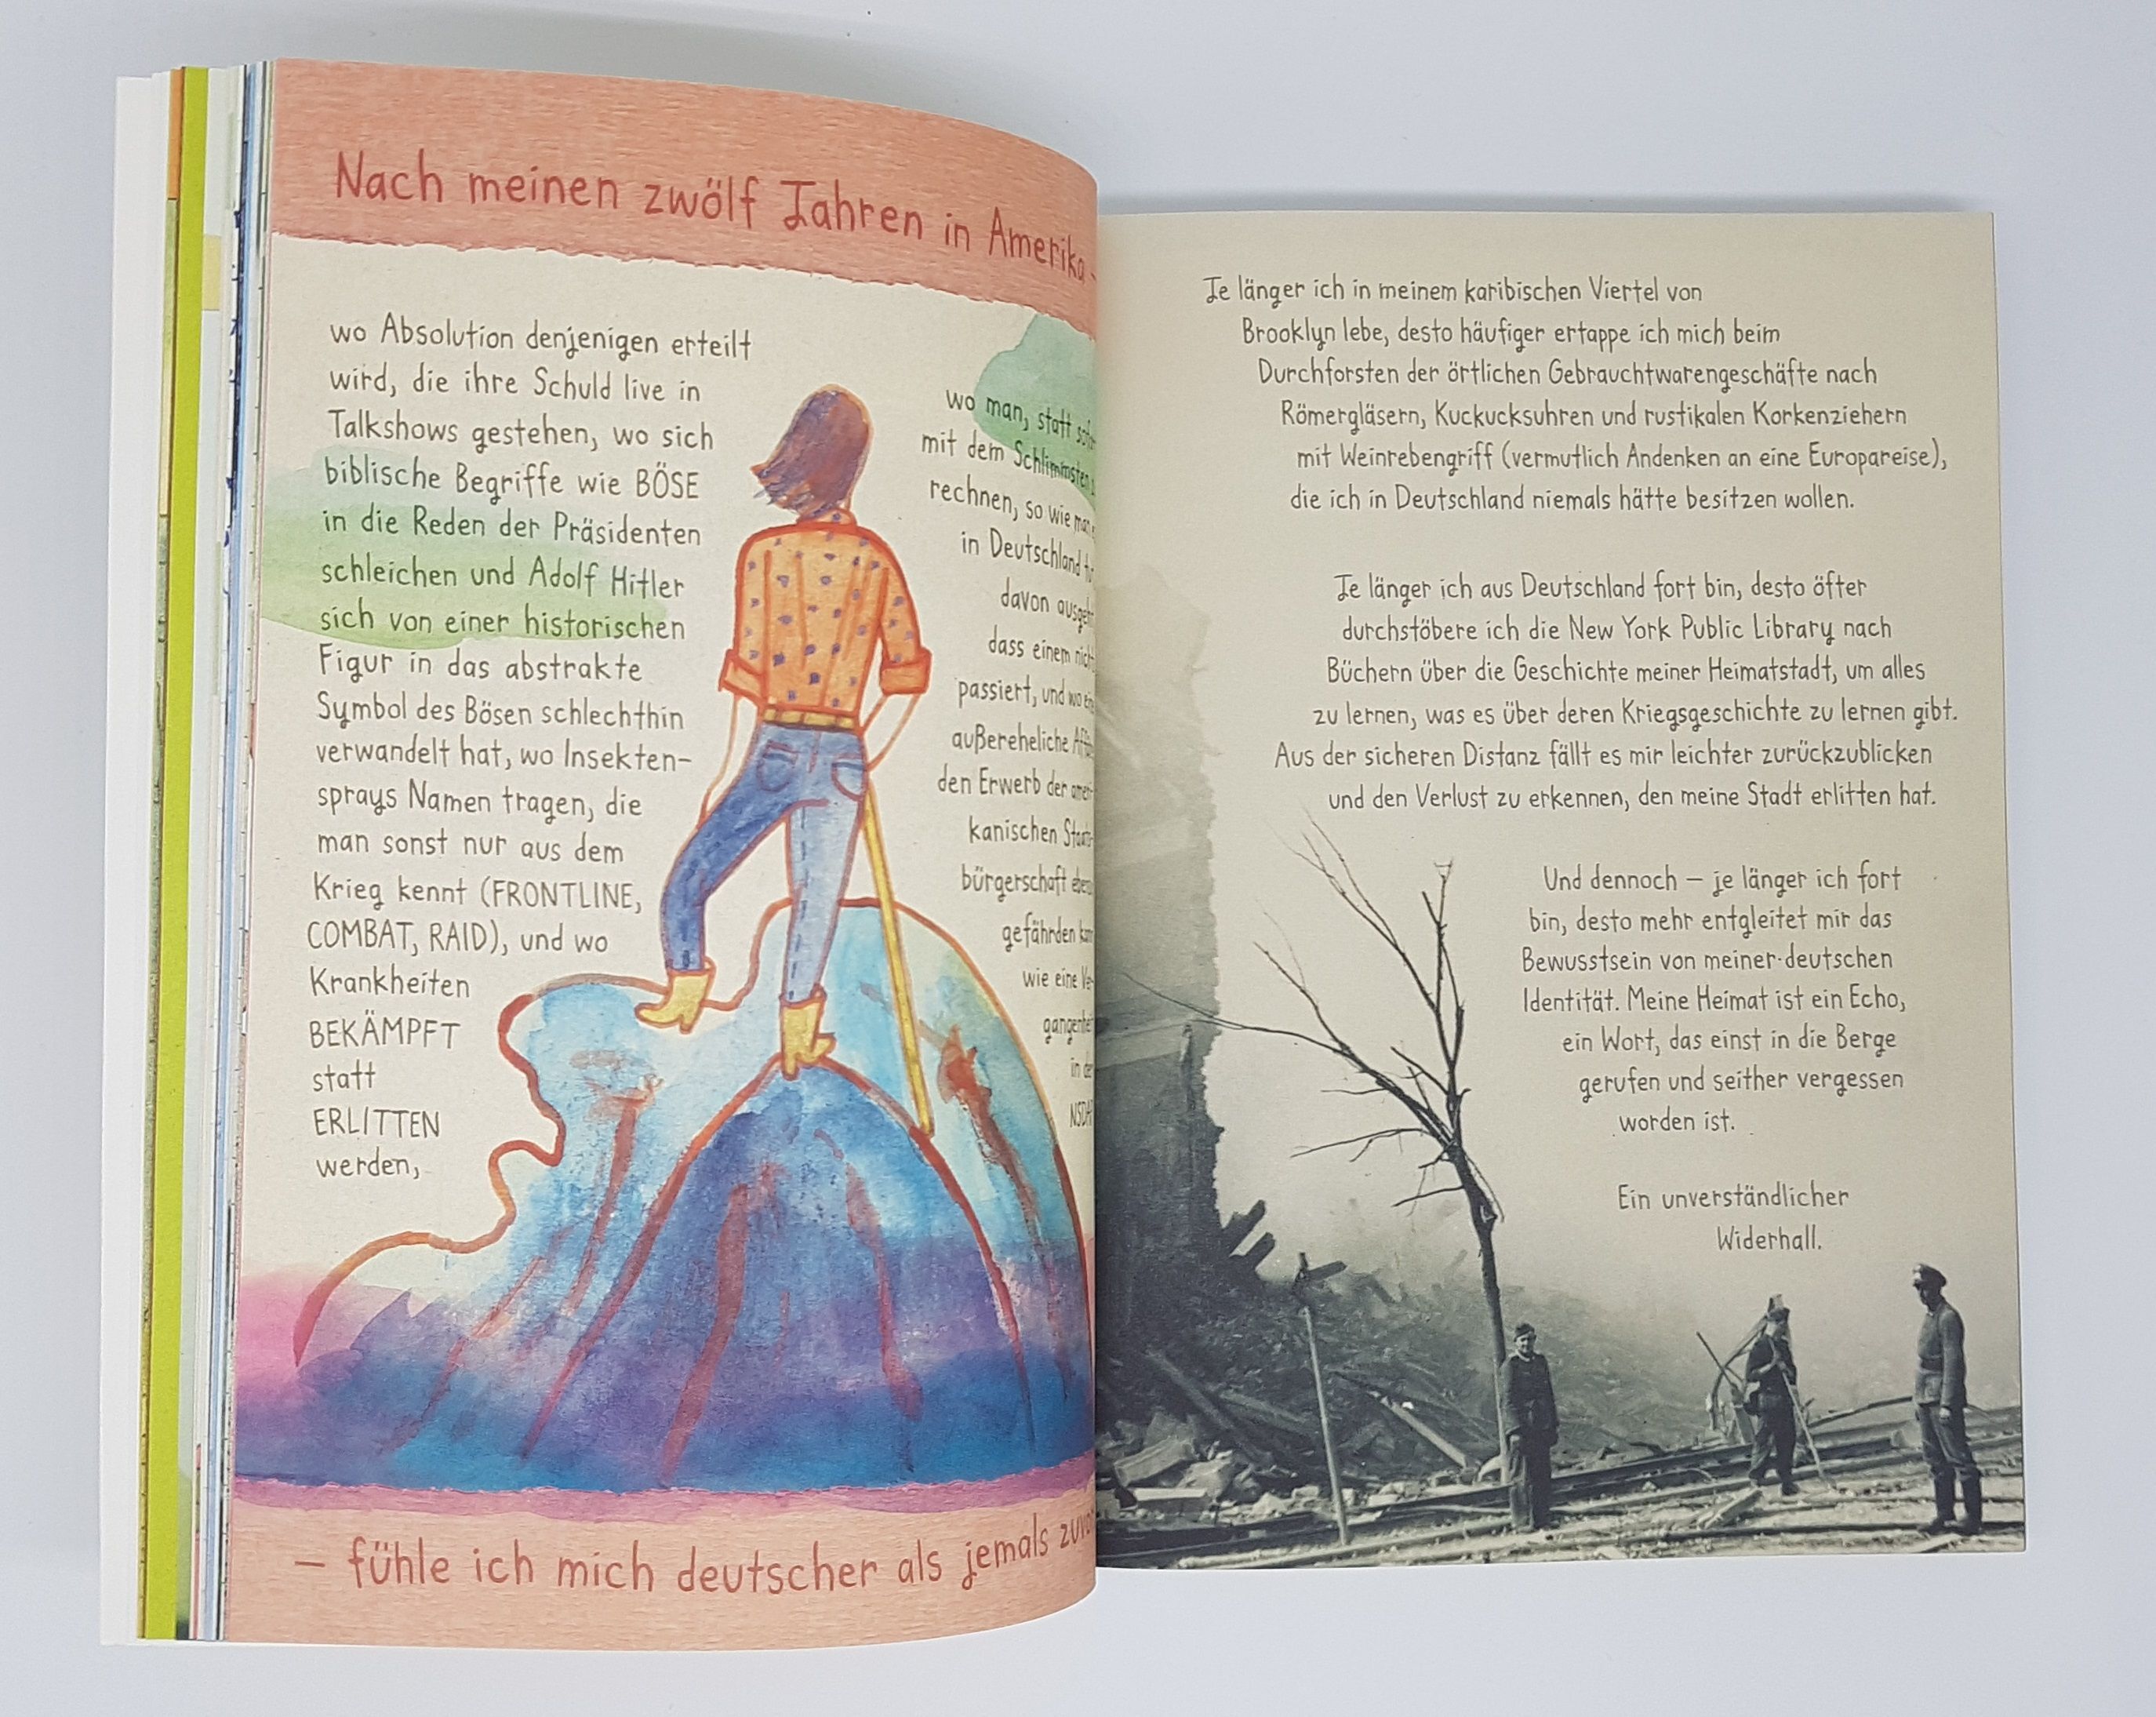 Nach meinen zwölf Jahren in Amerika –
wo Absolution denjenigen erteilt
wird, die ihre Schuld live in
Talkshows gestehen, wo sich
biblische Begriffe wie BÖSE
in die Reden der Präsidenten
schleichen und Adolf Hitler
sich von einer historischen
Figur in das abstrakte
Symbol des Bösen schlechthin
verwandelt hat, wo Insekten-
sprays Namen tragen, die
man sonst nur aus dem
Krieg kennt (FRONTLINE,
COMBAT, RAID), und wo
Krankheiten
BEKÄMPFT
statt
ERLITTEN
werden,
wo man, statt
mit dem Schlimmsten
rechnen, so wie man
in Deutschland
davon
dass einem
passiert, und wo
außereheliche
den Erwerb der ameri-
kanischen Staats-
bürgerschaft
gefährden
wie eine Ver-
gangenheit
in der
NSDAP
– fühle ich mich deutscher als jemals
Je länger ich in meinem karibischen Viertel von
Brooklyn lebe, desto häufiger ertappe ich mich beim
Durchforsten der örtlichen Gebrauchtwarengeschäfte nach
Römergläsern, Kuckucksuhren und rustikalen Korkenziehern
mit Weinrebengriff (vermutlich Andenken an eine Europareise),
die ich in Deutschland niemals hätte besitzen wollen.
Je länger ich aus Deutschland fort bin, desto öfter
durchstöbere ich die New York Public Library nach
Büchern über die Geschichte meiner Heimatstadt, um alles
zu lernen, was es über deren Kriegsgeschichte zu lernen gibt.
Aus der sicheren Distanz fällt es mir leichter zurückzublicken
und den Verlust zu erkennen, den meine Stadt erlitten hat.
Und dennoch – je länger ich fort
bin, desto mehr entgleitet mir das
Bewusstsein von meiner deutschen
Identität. Meine Heimat ist ein Echo,
ein Wort, das einst in die Berge
gerufen und seither vergessen
worden ist.
Ein unverständlicher
Widerhall.